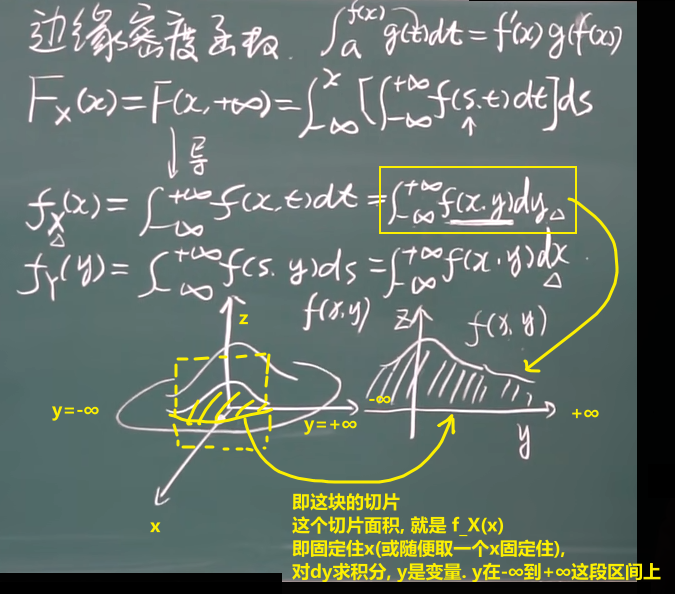 边缘密度函数. ∫_a^{f(x)} g(t)dt = f'(x)g(f(x))
F_X(x) = F(x,+∞) = ∫_{-∞}^{x} [∫_{-∞}^{+∞} f(s.t)dt]ds
↓导 ↑
f_X(x) = ∫_{-∞}^{+∞} f(x,t)dt = ∫_{-∞}^{+∞} f(x,y)dy
f_Y(y) = ∫_{-∞}^{+∞} f(s,y)ds = ∫_{-∞}^{+∞} f(x,y)dx.
z f(x,y) Z f(x,y)
y=-∞ y=+∞ -∞ +∞
y
x
即这块的切片
这个切片面积, 就是 f_X(x)
即固定住x(或随便取一个x固定住),
对dy求积分, y是变量. y在-∞到+∞这段区间上